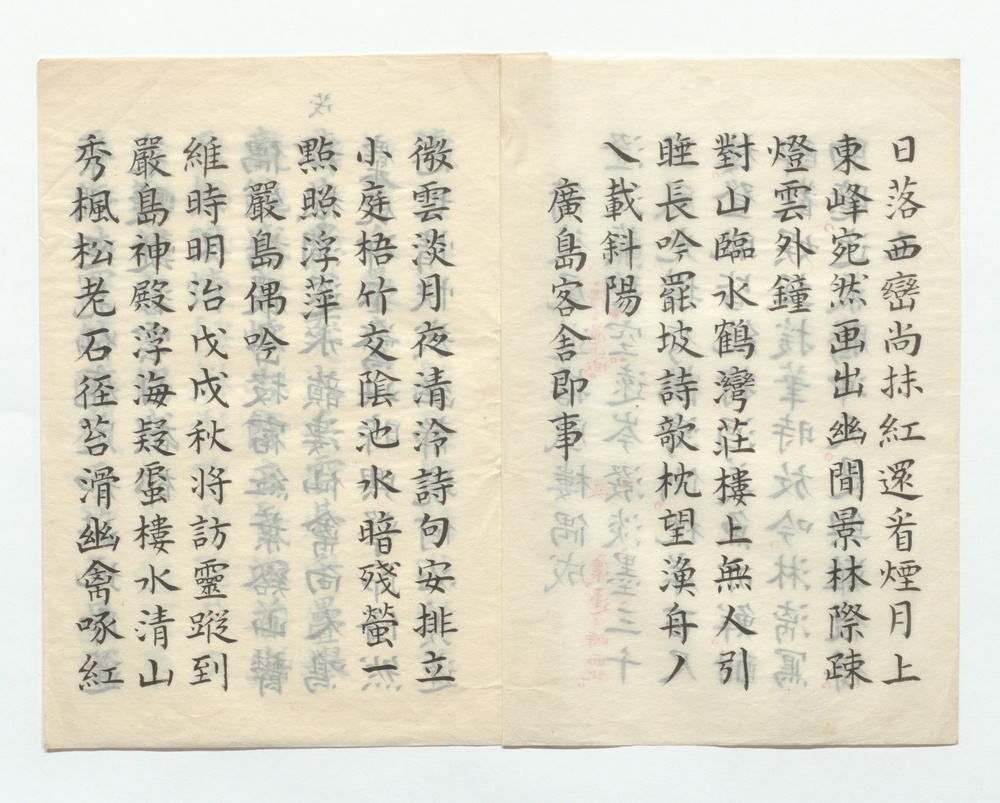 日落西巒尚抹紅還看煙月上
東峰宛然画出幽間景林際疎
燈雲外鐘
對山臨水鶴灣荘樓上無人引
睡長吟罷坡詩歌枕望漁舟ノ
乀載斜陽
廣島客舎即事
微雲淡月夜清泠詩句安排立
小庭梧竹交陰池水暗殘螢一
點照浮萍
嚴島偶吟
維時明治戊戌秋將訪靈蹤到
嚴島神殿浮海疑蜃樓水清山
秀楓松老石径苔滑幽禽啄紅